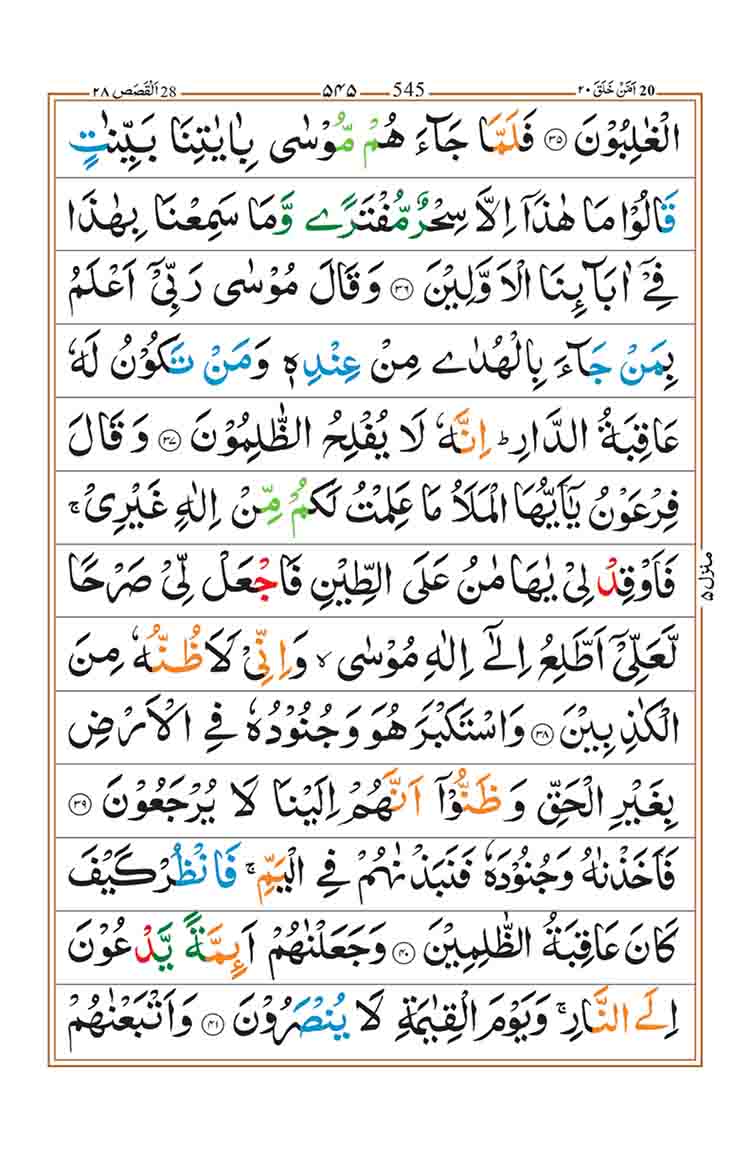 20 اَمَّنْ خَلَقَ ٢٠ 545 ۵۴۵ 28 اَلْقَصَص ٢٨
الْغٰلِبُوْنَ ۝٣٥ فَلَمَّا جَآءَ هُمْ مُّوْسٰى بِاٰيٰتِنَا بَيِّنٰتٍ
قَالُوْا مَا هٰذَآ اِلَّا سِحْرٌ مُّفْتَرًے وَّمَا سَمِعْنَا بِهٰذَا
فِیْۤ اٰبَآئِنَا الْاَوَّلِيْنَ ۝٣٦ وَقَالَ مُوْسٰى رَبِّیْۤ اَعْلَمُ
بِمَنْ جَآءَ بِالْهُدٰے مِنْ عِنْدِهٖ وَمَنْ تَكُوْنُ لَهٗ
عَاقِبَةُ الدَّارِ ؕ اِنَّهٗ لَا يُفْلِحُ الظّٰلِمُوْنَ ۝٣٧ وَقَالَ
فِرْعَوْنُ يٰۤاَيُّهَا الْمَلَاُ مَا عَلِمْتُ لَكُمْ مِّنْ اِلٰهٍ غَيْرِیْ ۚ
فَاَوْقِدْ لِیْ يٰهَامٰنُ عَلَى الطِّيْنِ فَاجْعَلْ لِّیْ صَرْحًا
لَّعَلِّیْۤ اَطَّلِعُ اِلٰٓے اِلٰهِ مُوْسٰى ۙ وَاِنِّیْ لَاَظُنُّهٗ مِنَ
الْكٰذِبِيْنَ ۝٣٨ وَاسْتَكْبَرَ هُوَ وَجُنُوْدُهٗ فِے الْاَرْضِ
بِغَيْرِ الْحَقِّ وَظَنُّوْۤا اَنَّهُمْ اِلَيْنَا لَا يُرْجَعُوْنَ ۝٣٩
فَاَخَذْنٰهُ وَجُنُوْدَهٗ فَنَبَذْنٰهُمْ فِے الْيَمِّ ۚ فَانْظُرْ كَيْفَ
كَانَ عَاقِبَةُ الظّٰلِمِيْنَ ۝٤٠ وَجَعَلْنٰهُمْ اَئِمَّةً يَّدْعُوْنَ
اِلَے النَّارِ ۚ وَيَوْمَ الْقِيٰمَةِ لَا يُنْصَرُوْنَ ۝٤١ وَاَتْبَعْنٰهُمْ
منزل ۵